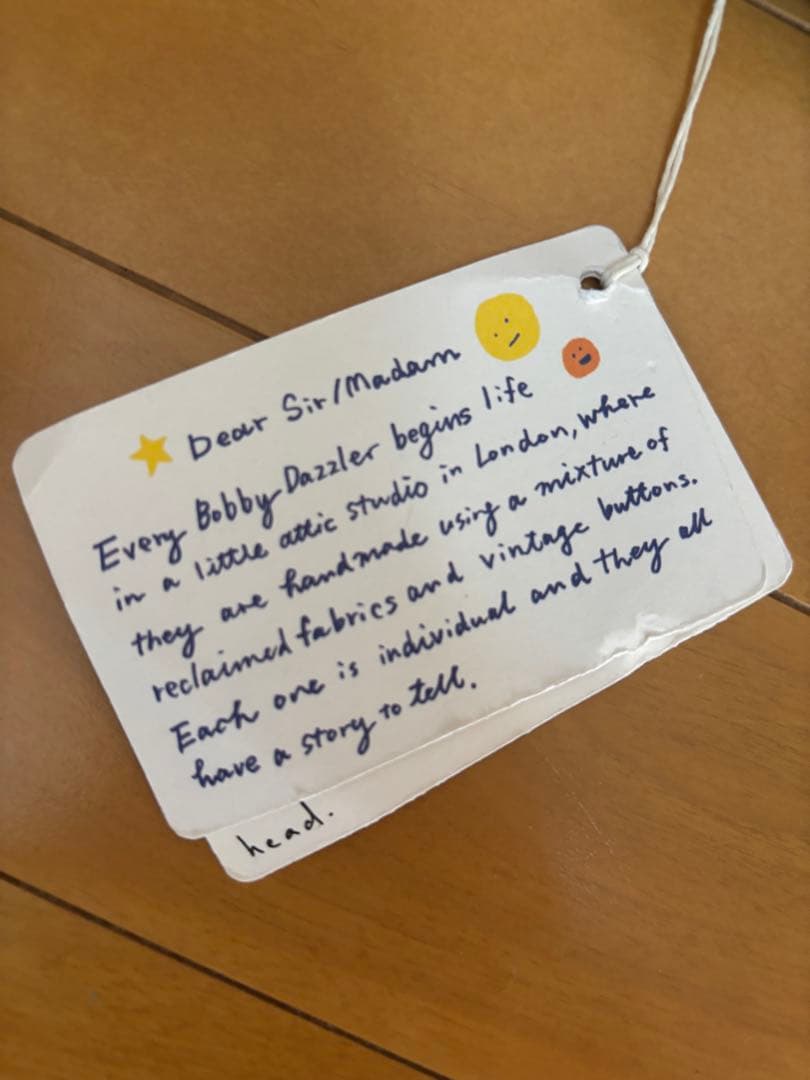 Dear Sir/Madam
Every Bobby Dazzler begins life
in a little attic studio in London, where
they are handmade using a mixture of
reclaimed fabrics and vintage buttons.
Each one is individual and they all
have a story to tell.
head.